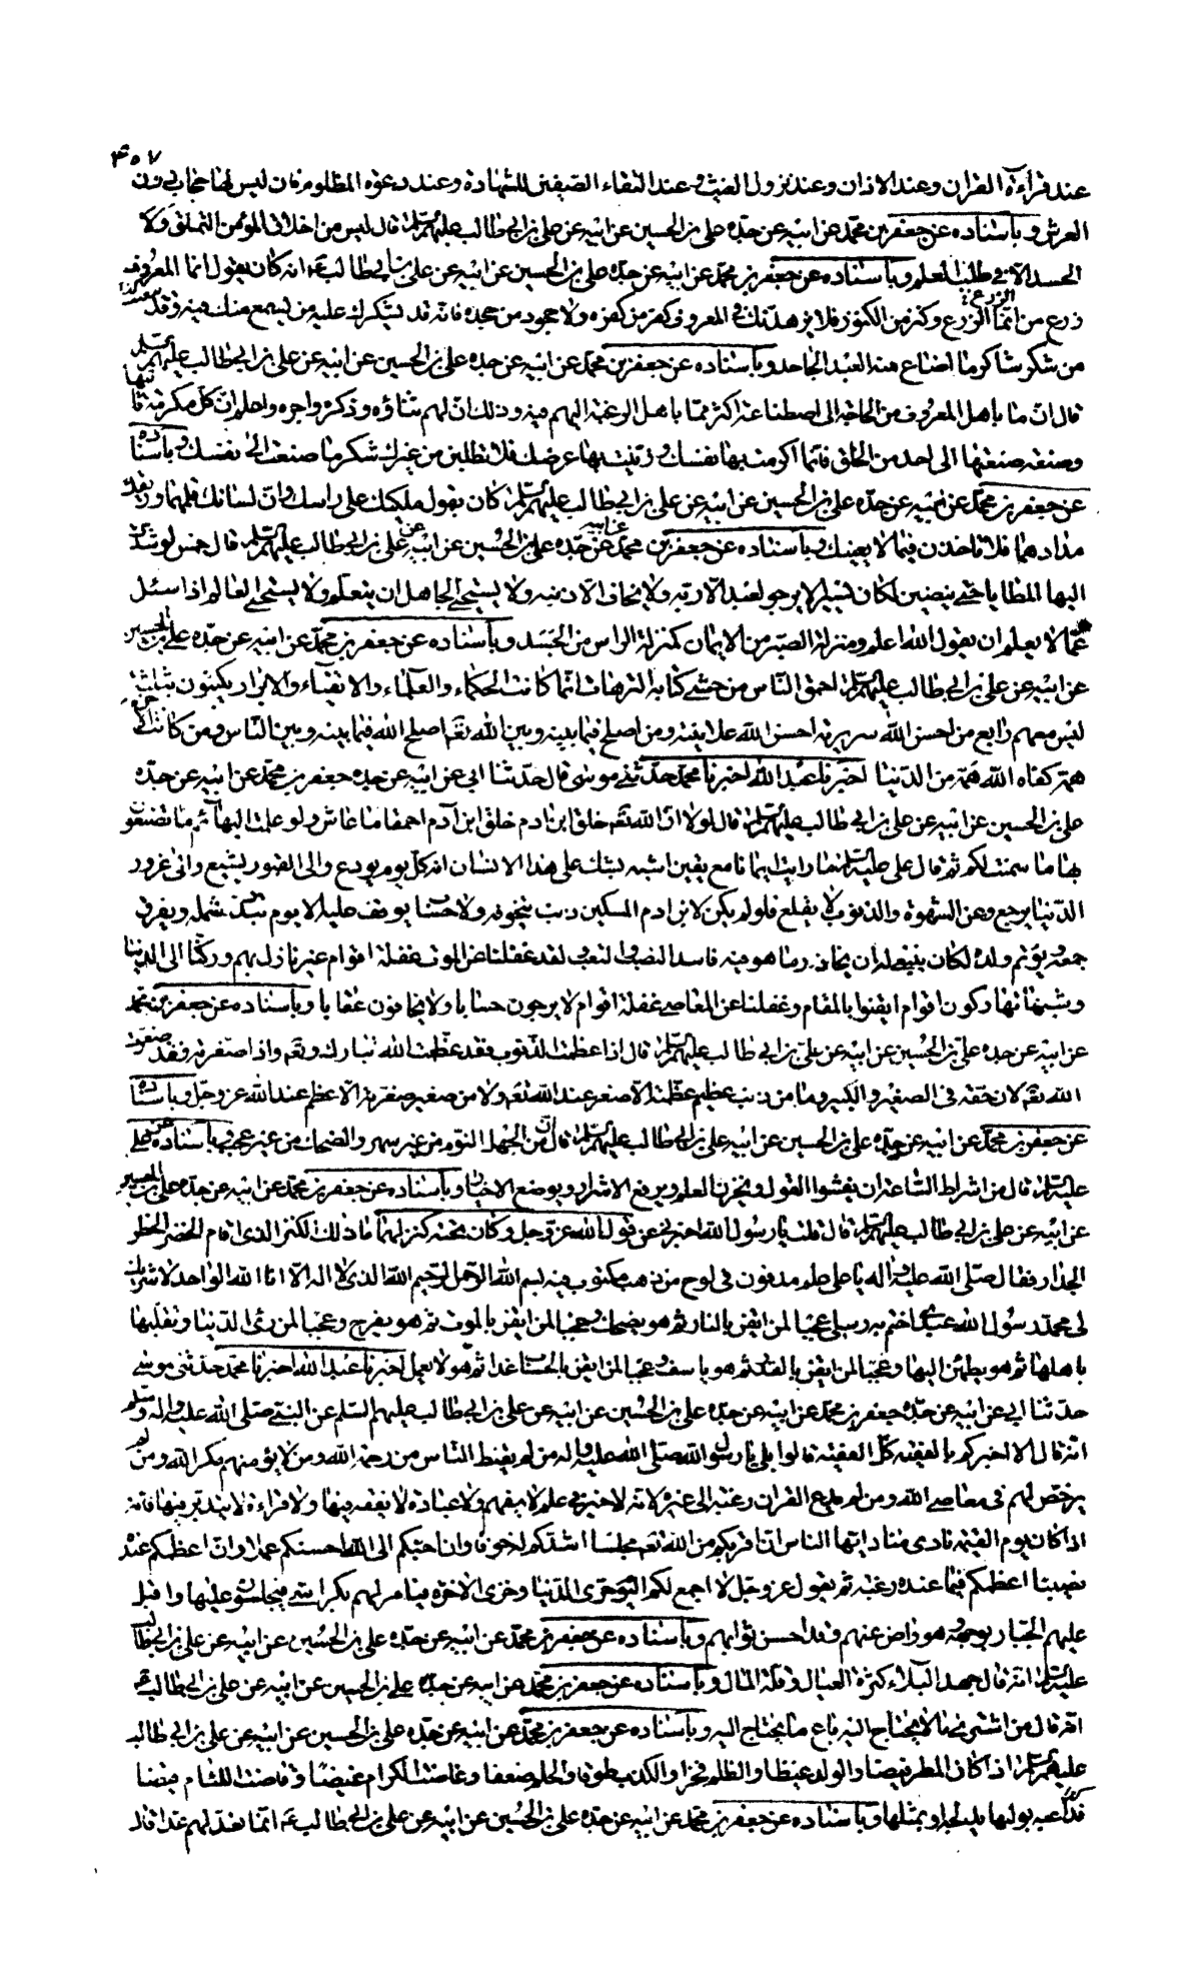 ٣٥٧
عند قراءة القران وعند الاذان وعند نزول الغيث وعند التقاء الصفين للشهادة وعند دعوة المظلوم فان ليس لها حجاب دون
العرش وباسناده عن جعفر بن محمد عن ابيه عن جده علي بن الحسين عن ابيه عن علي بن ابي طالب عليهم السلم قال ليس من اخلاق المؤمن التملق ولا
الحسد الا في طلب العلم وباسناده عن جعفر بن محمد عن ابيه عن جده علي بن الحسين عن ابيه عن علي بن ابي طالب ع انه كان يقول انما المعروف
زرع من انمى الزرع وكنز من الكنوز فلا يزهدنك في المعروف كفر من كفره ولا جحود من جحده فانه قد يشكرك عليه من يسمع منك فيه وقد
من شكر شاكر ما اضاع منه العبد الجاحد وباسناده عن جعفر بن محمد عن ابيه عن جده علي بن الحسين عن ابيه عن علي بن ابي طالب عليهم السلم
قال ان ما باهل المعروف من الحاجة الى اصطناعه اكثر مما باهل الرغبة اليهم فيه وذلك ان لهم ثناؤه وذكره واجره واعلم ان كل مكرمة
وصنعة صنعتها الى احد من الخلق فانما اكرمت بها نفسك وزينت بها عرضك فلا تطلبن من غيرك شكر ما صنعت الى نفسك وباسناده
عن جعفر بن محمد عن ابيه عن جده علي بن الحسين عن ابيه عن علي بن ابي طالب عليهم السلم كان يقول ملكك على راسك وان لسانك قلمها وريقك
مدادهما فلا تاخذن فيما لا يعنيك وباسناده عن جعفر بن محمد عن ابيه عن جده علي بن الحسين عن ابيه عن علي بن ابي طالب عليهم السلم قال خمس لو شدت
اليها المطايا حتى ينضين لكان يسيرا لا يرجو العبد الا ربه ولا يخاف الا ذنبه ولا يستحيي الجاهل ان يتعلم ولا يستحيي العالم اذا سئل
عما لا يعلم ان يقول الله اعلم ومنزلة الصبر من الايمان كمنزلة الراس من الجسد وباسناده عن جعفر بن محمد عن ابيه عن جده علي بن الحسين
عن ابيه عن علي بن ابي طالب عليهم السلم احمق الناس من حشى كتابه الترهات انما كانت الحكماء والعلماء والاتقياء والابرار يكتبون بثلثة
ليس معهم رابع من احسن الله سريرته احسن الله علانيته ومن اصلح فيما بينه وبين الله تعم اصلح الله فيما بينه وبين الناس ومن كانت
همته كفاه الله همه من الدنيا اخبرنا عبد الله اخبرنا محمد حدثني موسى قال حدثنا ابي عن ابيه عن جده جعفر بن محمد عن ابيه عن جده
علي بن الحسين عن ابيه عن علي بن ابي طالب عليهم السلم قال لولا ان الله تعم خلق ابن ادم خلق ابن آدم احمقا ما عاش ولو علمت البهائم ما تصنعو
بها ما سمنت لكم ثم قال علي عليه السلم ما رايت ايمانا مع يقين اشبه بشك على هذا الانسان انه كل يوم يودع والى القبور يشيع والى غرور
الدنيا يرجع وعن الشهوة والذنوب لا يقلع فلو لم يكن لابن ادم المسكين ذنب يتخوفه ولا حساب يوقف عليه الا يوم تبدد شمله ويفرق
جمعه ويوتم ولده لكان ينبغي له ان يحاذر ما هو فيه لقد غفلنا عن الموت غفلة اقوام غير نازل بهم وركنا الى الدنيا
وشهواتها ركون اقوام ايقنوا بالمقام وغفلنا عن المعاصي غفلة اقوام لا يرجون حسابا ولا يخافون عقابا وباسناده عن جعفر بن محمد
عن ابيه عن جده علي بن الحسين عن ابيه عن علي بن ابي طالب عليهم السلم قال اذا عظمت الذنوب فقد عظمت الله تبارك وتعم واذا صغرته فقد صغرت
الله تعم لان حقه في الصغير والكبير وما من ذنب عظيم عظمته الا صغر عند الله تعم ولا من صغير صغرته الا عظم عند الله عز وجل وباسناده
عن جعفر بن محمد عن ابيه عن جده علي بن الحسين عن ابيه علي بن ابي طالب عليهم السلم قال ان من الجهل النوم من غير سهر والضحك من غير عجب وباسناده عن علي
عليه السلم قال من اشراط الساعة ان يفشوا القول ويخزن العلم ويرفع الاشرار ويوضع الاخيار وباسناده عن جعفر بن محمد عن ابيه عن جده علي بن الحسين
عن ابيه عن علي بن ابي طالب عليهم السلم قال قلت يا رسول الله اخبرني عن قول الله عز وجل وكان تحته كنز لهما ما ذلك الكنز الذي اقام الخضر
الجدار فقال صلى الله عليه واله يا علي علم مدفون في لوح من ذهب مكتوب فيه بسم الله الرحمن الرحيم الله الذي لا اله الا انا الله الواحد لا شريك
لي محمد رسول الله عبدي اختم به رسلي عجبا لمن ايقن بالنار ثم هو يضحك وعجبا لمن ايقن بالموت ثم هو يفرح وعجبا لمن رئى الدنيا وتقلبها
باهلها ثم هو يطمئن اليها وعجبا لمن ايقن بالقدر ثم هو ياسف وعجبا لمن ايقن بالحساب غدا ثم هو لا يعمل اخبرنا عبد الله اخبرنا محمد حدثني موسى
حدثنا ابي عن ابيه عن جده جعفر بن محمد عن ابيه عن جده علي بن الحسين عن ابيه عن علي بن ابي طالب عليهم السلم عن النبي صلى الله عليه واله وسلم
انه قال الا اخبركم بالفقيه كل الفقيه قالوا بلى يا رسول الله صلى الله عليه واله من لم يقنط الناس من رحمة الله ومن لا يؤمنهم مكر الله ومن لم
يرخص لهم في معاصي الله ومن لم يدع القران رغبة الى غيره لانه لا خير في علم لا يفهم ولا عبادة لا يفقه فيها ولا قراءة لا يتدبر فيها فانه
اذا كان يوم القيمة نادى مناد ايها الناس ان اقربكم من الله تعم مجلسا اشدكم له خوفا وان احبكم الى الله احسنكم عملا وان اعظمكم عنده
نصيبا اعظمكم فيما عنده رغبة ثم يقول عز وجل لا اجمع لكم اليوم خزي الدنيا وخزي الاخرة فيامر لهم بكراسي فيجلسون عليها واقبل
عليهم الجبار بوجهه وهو راض عنهم وقد احسن ثوابهم وباسناده عن جعفر بن محمد عن ابيه عن جده علي بن الحسين عن ابيه عن علي بن ابي طالب
عليه السلم انه قال جهد البلاء كثرة العيال وقلة المال وباسناده عن جعفر بن محمد عن ابيه عن جده علي بن الحسين عن ابيه عن علي بن ابي طالب ع
انه قال من اشترى ما لا يحتاج اليه باع ما يحتاج اليه وباسناده عن جعفر بن محمد عن ابيه عن جده علي بن الحسين عن ابيه عن علي بن ابي طالب
عليهم السلم اذا كان المطر قيضا والولد غيظا والظلم فخرا والكذب والحلم ضعفا وغاضت الكرام غيضا وفاضت اللئام فيضا
وباسناده عن جعفر بن محمد عن ابيه عن جده علي بن الحسين عن ابيه عن علي بن ابي طالب ع انما